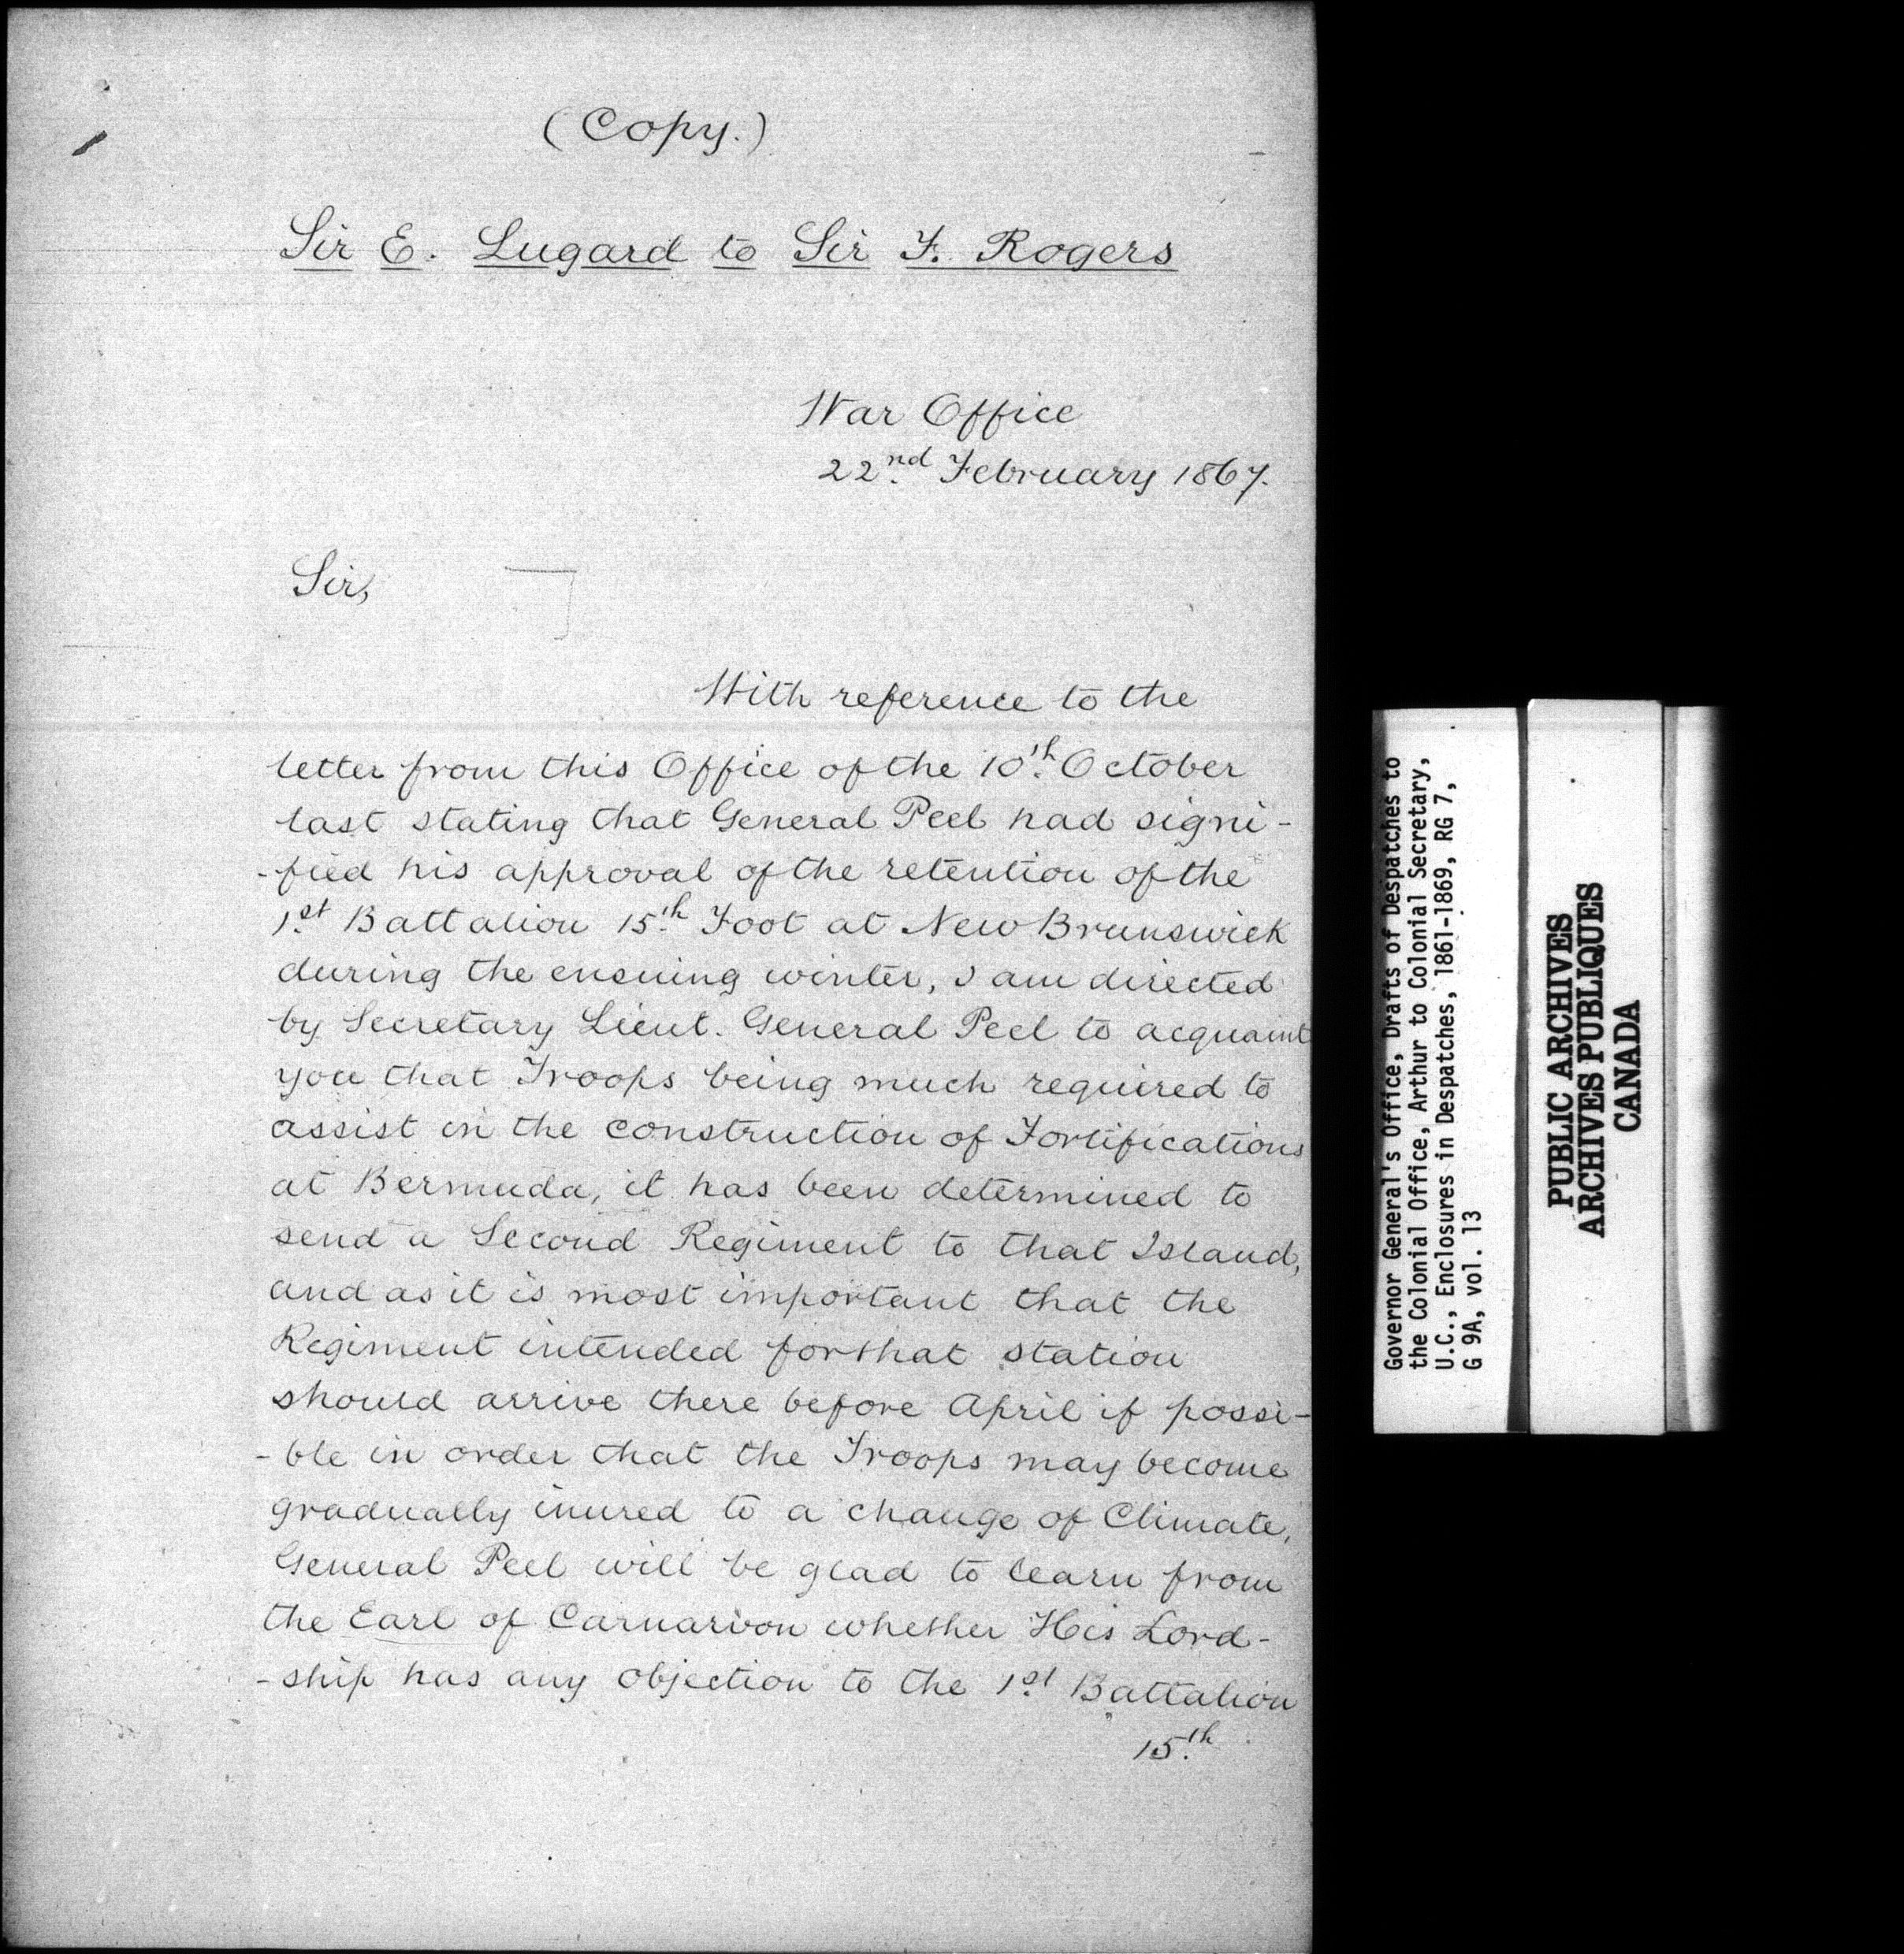 (Copy.)
Sir E. Lugard to Sir F. Rogers
War Office
22nd February 1867.
Sir,
With reference to the
letter from this Office of the 10th October
last stating that General Peel had signi-
-fied his approval of the retention of the
1st Battalion 15th Foot at New Brunswick
during the ensuing winter, I am directed
by Secretary Lieut. General Peel to acquaint
you that Troops being much required to
assist in the construction of Fortifications
at Bermuda, it has been determined to
send a Second Regiment to that Island,
and as it is most important that the
Regiment intended for that station
should arrive there before April if possi-
-ble in order that the Troops may become
gradually inured to a change of Climate,
General Peel will be glad to learn from
the Earl of Carnarvon whether His Lord-
-ship has any objection to the 1st Battalion
15th
Governor General's Office, Drafts of Despatches to
the Colonial Office, Arthur to Colonial Secretary,
U.C., Enclosures in Despatches, 1861-1869, RG 7,
G 9A, vol. 13
PUBLIC ARCHIVES
ARCHIVES PUBLIQUES
CANADA